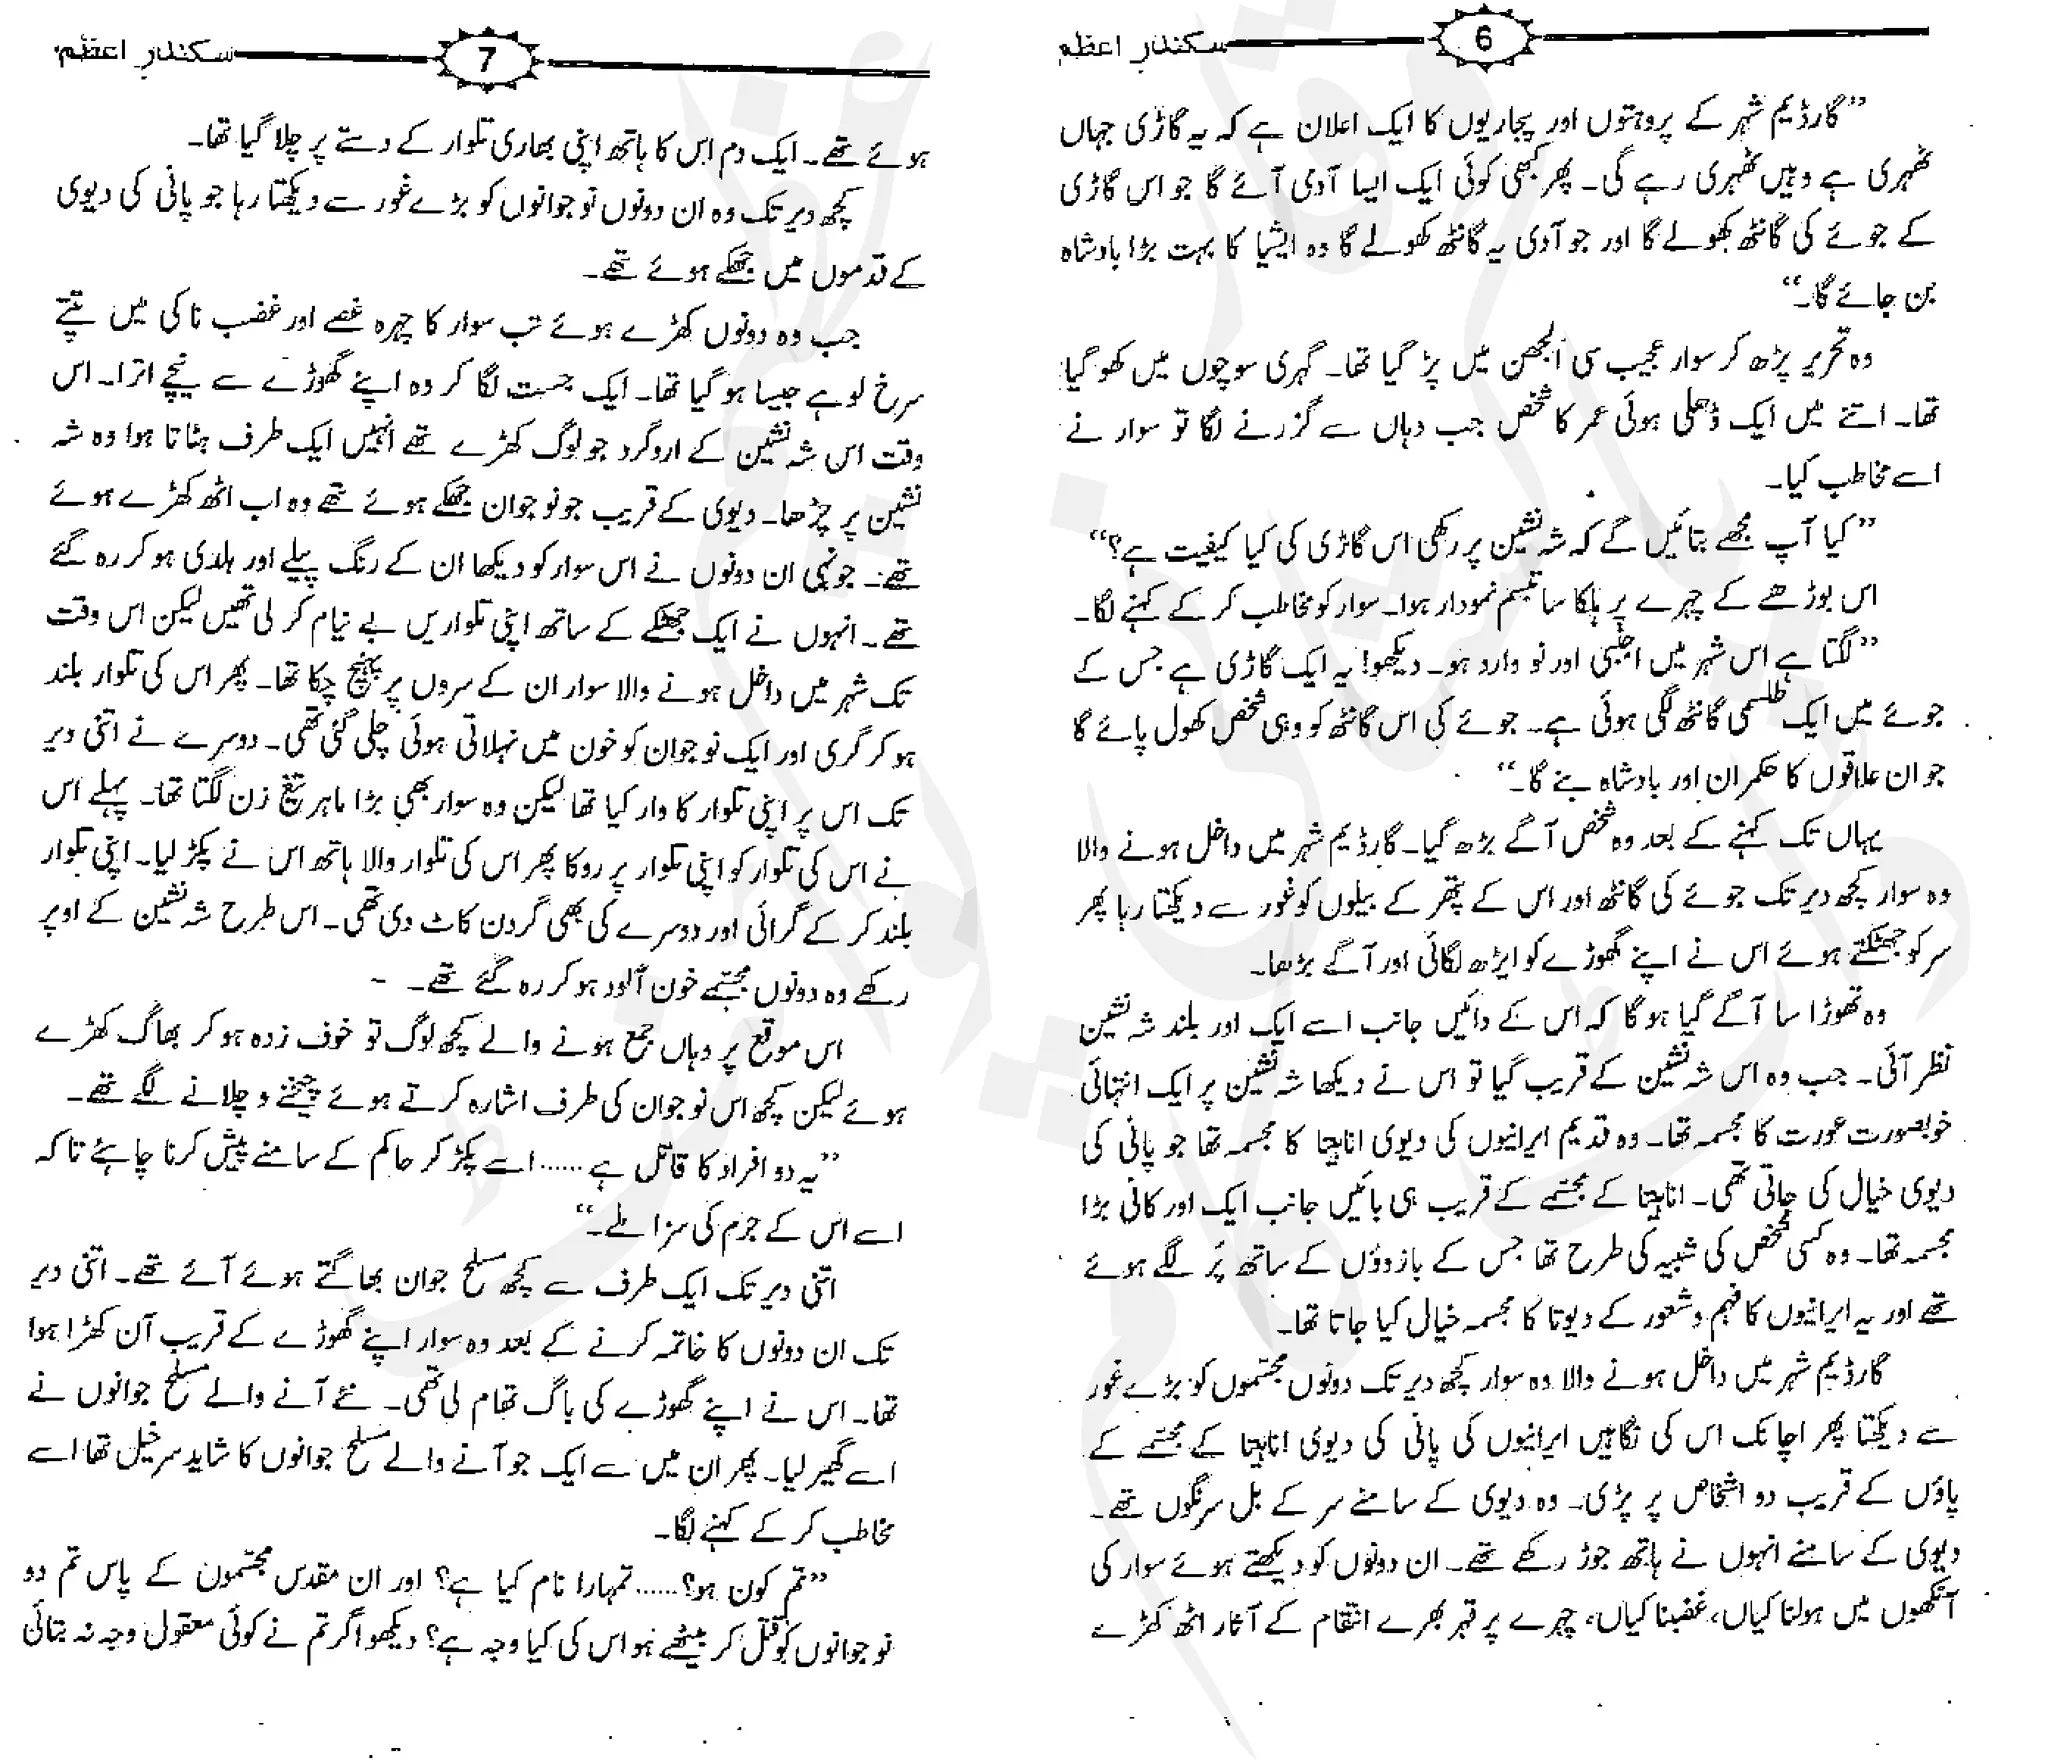 سکندرِ اعظم 6
”گارڈیم شہر کے پروہتوں اور پجاریوں کا ایک اعلان ہے کہ یہ گاڑی جہاں
ٹھہری ہے وہیں ٹھہری رہے گی۔ پھر کبھی کوئی ایک ایسا آدمی آئے گا جو اس گاڑی
کے جوئے کی گانٹھ کھولے گا اور جو آدمی یہ گانٹھ کھولے گا وہ ایشیا کا بہت بڑا بادشاہ
بن جائے گا۔“
وہ تحریر پڑھ کر سوار عجیب سی اُلجھن میں پڑ گیا تھا۔ گہری سوچوں میں کھو گیا
تھا۔ اتنے میں ایک ڈھلی ہوئی عمر کا شخص جب وہاں سے گزرنے لگا تو سوار نے
اسے مخاطب کیا۔
”کیا آپ مجھے بتائیں گے کہ شہ نشین پر رکھی اس گاڑی کی کیا کیفیت ہے؟“
اس بوڑھے کے چہرے پر ہلکا سا تبسم نمودار ہوا۔ سوار کو مخاطب کر کے کہنے لگا۔
”لگتا ہے اس شہر میں اجنبی اور نو وارد ہو۔ دیکھو! یہ ایک گاڑی ہے جس کے
جوئے میں ایک طلسمی گانٹھ لگی ہوئی ہے۔ جوئے کی اس گانٹھ کو وہی شخص کھول پائے گا
جو ان علاقوں کا حکمران اور بادشاہ بنے گا۔“
یہاں تک کہنے کے بعد وہ شخص آگے بڑھ گیا۔ گارڈیم شہر میں داخل ہونے والا
وہ سوار کچھ دیر تک جوئے کی گانٹھ اور اس کے پتھر کے بیلوں کو غور سے دیکھتا رہا پھر
سر کو جھٹکتے ہوئے اس نے اپنے گھوڑے کو ایڑھ لگائی اور آگے بڑھا۔
وہ تھوڑا سا آگے گیا ہو گا کہ اس کے دائیں جانب اسے ایک اور بلند شہ نشین
نظر آئی۔ جب وہ اس شہ نشین کے قریب گیا تو اس نے دیکھا شہ نشین پر ایک انتہائی
خوبصورت عورت کا مجسمہ تھا۔ وہ قدیم ایرانیوں کی دیوی اناہیتا کا مجسمہ تھا جو پانی کی
دیوی خیال کی جاتی تھی۔ اناہیتا کے مجسمے کے قریب ہی بائیں جانب ایک اور کافی بڑا
مجسمہ تھا۔ وہ کسی شخص کی شبیہ کی طرح تھا جس کے بازوؤں کے ساتھ پَر لگے ہوئے
تھے اور یہ ایرانیوں کا فہم و شعور کے دیوتا کا مجسمہ خیال کیا جاتا تھا۔
گارڈیم شہر میں داخل ہونے والا وہ سوار کچھ دیر تک دونوں مجسموں کو بڑے غور
سے دیکھتا پھر اچانک اس کی نگاہیں ایرانیوں کی پانی کی دیوی اناہیتا کے مجسمے کے
پاؤں کے قریب دو اشخاص پر پڑی۔ وہ دیوی کے سامنے سر کے بل سرنگوں تھے۔
دیوی کے سامنے انہوں نے ہاتھ جوڑ رکھے تھے۔ ان دونوں کو دیکھتے ہوئے سوار کی
آنکھوں میں ہولناکیاں، غضبناکیاں، چہرے پر قہر بھرے انتقام کے آثار اٹھ کھڑے
سکندرِ اعظم 7
ہوئے تھے۔ ایک دم اس کا ہاتھ اپنی بھاری تلوار کے دستے پر چلا گیا تھا۔
کچھ دیر تک وہ ان دونوں نوجوانوں کو بڑے غور سے دیکھتا رہا جو پانی کی دیوی
کے قدموں میں جھکے ہوئے تھے۔
جب وہ دونوں کھڑے ہوئے تب سوار کا چہرہ غصے اور غضب ناکی میں تپتے
سرخ لوہے جیسا ہو گیا تھا۔ ایک جست لگا کر وہ اپنے گھوڑے سے نیچے اترا۔ اس
وقت اس شہ نشین کے اردگرد جو لوگ کھڑے تھے انہیں ایک طرف ہٹاتا ہوا وہ شہ
نشین پر چڑھا۔ دیوی کے قریب جو نوجوان جھکے ہوئے تھے وہ اب اٹھ کھڑے ہوئے
تھے۔ جونہی ان دونوں نے اس سوار کو دیکھا ان کے رنگ پیلے اور ہلدی ہو کر رہ گئے
تھے۔ انہوں نے ایک جھٹکے کے ساتھ اپنی تلواریں بے نیام کر لی تھیں لیکن اس وقت
تک شہر میں داخل ہونے والا سوار ان کے سروں پر پہنچ چکا تھا۔ پھر اس کی تلوار بلند
ہو کر گری اور ایک نوجوان کو خون میں نہلاتی ہوئی چلی گئی تھی۔ دوسرے نے اتنی دیر
تک اس پر اپنی تلوار کا وار کیا تھا لیکن وہ سوار بھی بڑا ماہر تیغ زن لگتا تھا۔ پہلے اس
نے اس کی تلوار کو اپنی تلوار پر روکا پھر اس کی تلوار والا ہاتھ اس نے پکڑ لیا۔ اپنی تلوار
بلند کر کے گرائی اور دوسرے کی بھی گردن کاٹ دی تھی۔ اس طرح شہ نشین کے اوپر
رکھے وہ دونوں مجسمے خون آلود ہو کر رہ گئے تھے۔
اس موقع پر وہاں جمع ہونے والے کچھ لوگ تو خوف زدہ ہو کر بھاگ کھڑے
ہوئے لیکن کچھ اس نوجوان کی طرف اشارہ کرتے ہوئے چیخنے و چلانے لگے تھے۔
”یہ دو افراد کا قاتل ہے ...... اسے پکڑ کر حاکم کے سامنے پیش کرنا چاہئے تاکہ
اسے اس کے جرم کی سزا ملے۔“
اتنی دیر تک ایک طرف سے کچھ مسلح جوان بھاگتے ہوئے آئے تھے۔ اتنی دیر
تک ان دونوں کا خاتمہ کرنے کے بعد وہ سوار اپنے گھوڑے کے قریب آن کھڑا ہوا
تھا۔ اس نے اپنے گھوڑے کی باگ تھام لی تھی۔ نئے آنے والے مسلح جوانوں نے
اسے گھیر لیا۔ پھر ان میں سے ایک جو آنے والے مسلح جوانوں کا شاید سرخیل تھا اسے
مخاطب کر کے کہنے لگا۔
”تم کون ہو؟ ...... تمہارا نام کیا ہے؟ اور ان مقدس مجسموں کے پاس تم دو
نوجوانوں کو قتل کر بیٹھے ہو اس کی کیا وجہ ہے؟ دیکھو اگر تم نے کوئی معقول وجہ نہ بتائی